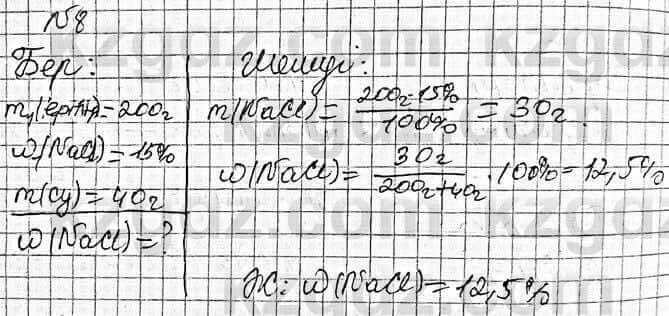 №8
Бер:
m₁(ерітінді)=200г
ω₁(NaCl)=15%
m(су)=40г
ω(NaCl)=?
Шешуі:
m(NaCl)= 200г·15% / 100% = 30г.
ω(NaCl)= 30г / 200г+40г · 100%=12,5%
Ж: ω(NaCl)=12,5%
kzgaz.com